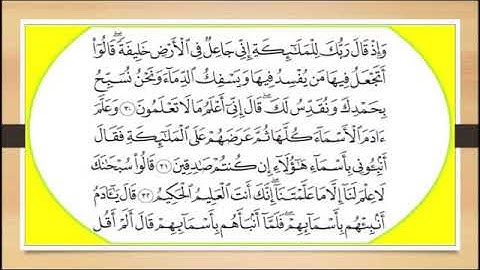 وَإِذْ قَالَ رَبُّكَ لِلْمَلَٰٓئِكَةِ إِنِّي جَاعِلٌ فِي ٱلْأَرْضِ خَلِيفَةً ۖ قَالُوٓا۟
أَتَجْعَلُ فِيهَا مَن يُفْسِدُ فِيهَا وَيَسْفِكُ ٱلدِّمَآءَ وَنَحْنُ نُسَبِّحُ
بِحَمْدِكَ وَنُقَدِّسُ لَكَ ۖ قَالَ إِنِّيٓ أَعْلَمُ مَا لَا تَعْلَمُونَ ٣٠ وَعَلَّمَ
ءَادَمَ ٱلْأَسْمَآءَ كُلَّهَا ثُمَّ عَرَضَهُمْ عَلَى ٱلْمَلَٰٓئِكَةِ فَقَالَ
أَنۢبِـُٔونِي بِأَسْمَآءِ هَٰٓؤُلَآءِ إِن كُنتُمْ صَٰدِقِينَ ٣١ قَالُوا۟ سُبْحَٰنَكَ
لَا عِلْمَ لَنَآ إِلَّا مَا عَلَّمْتَنَآ ۖ إِنَّكَ أَنتَ ٱلْعَلِيمُ ٱلْحَكِيمُ ٣٢ قَالَ يَٰٓـَٔادَمُ
أَنۢبِئْهُم بِأَسْمَآئِهِمْ ۖ فَلَمَّآ أَنۢبَأَهُم بِأَسْمَآئِهِمْ قَالَ أَلَمْ أَقُل